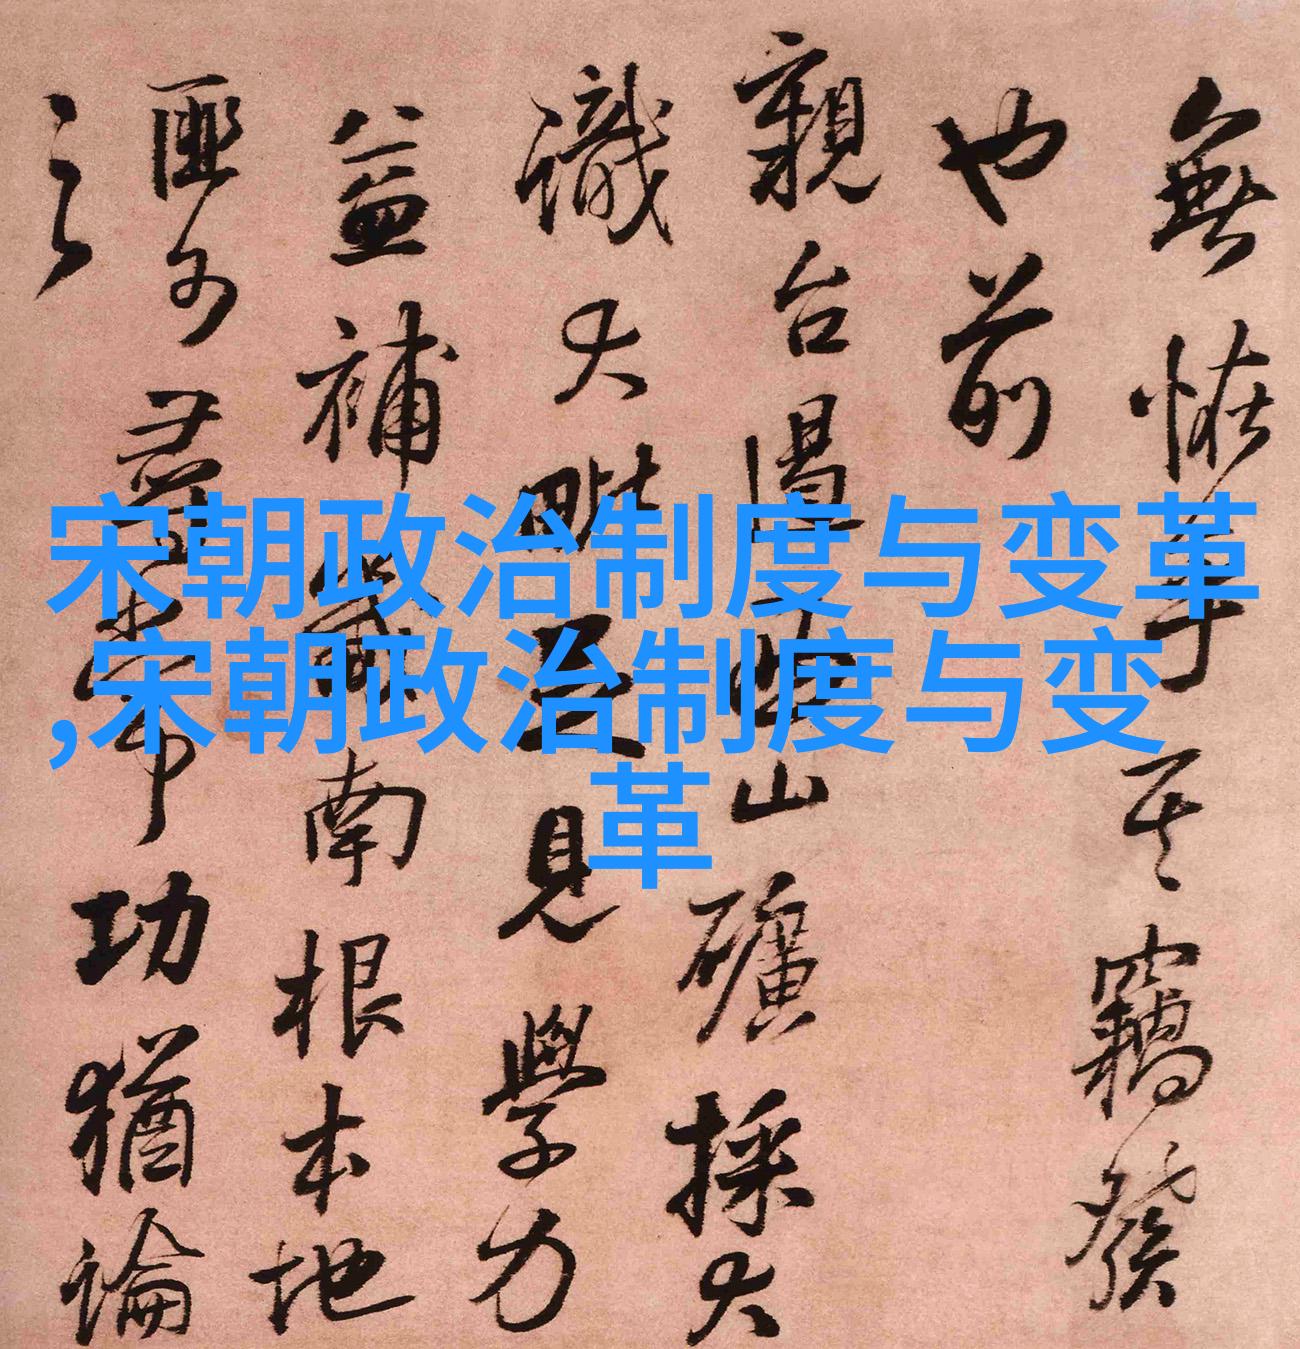 宋朝政治制度与变革
,宋朝政治制度与变
革
無恠乎其竊發
也前
親台山礦採大
識大見學力
益補南根本地
匪可尋常功猶論
之